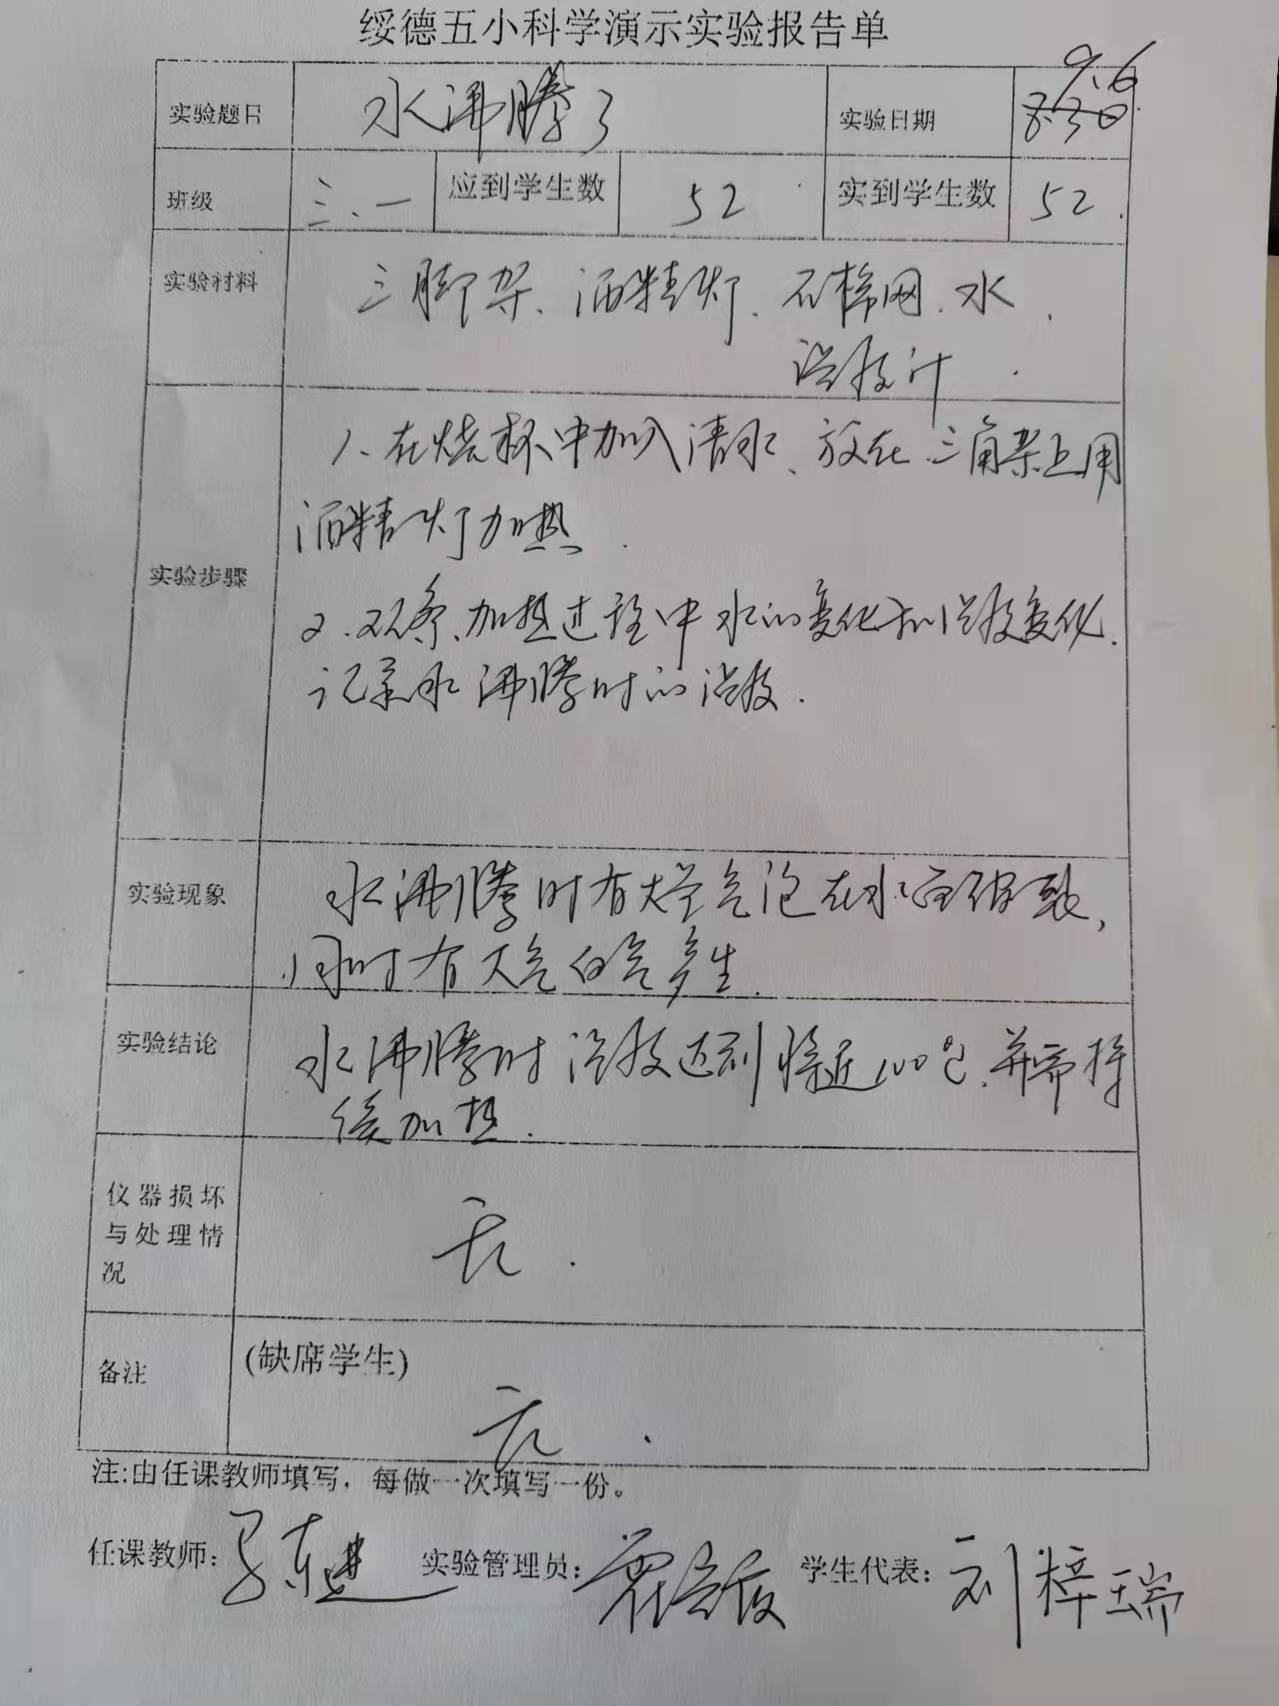 绥德五小科学演示实验报告单
实验题目 水沸腾了 实验日期 8.30 9.6
班级 三、一 应到学生数 52 实到学生数 52.
实验材料 三脚架、酒精灯、石棉网、水、
温度计.
1、在烧杯中加入清水、放在三角架上用
酒精灯加热.
实验步骤
2、观察、加热过程中水的变化和温度变化.
记录水沸腾时的温度.
实验现象 水沸腾时有大量气泡在水
同时有大气白气产生.
实验结论 水沸腾时温度达到将近100℃.并需持
续加热.
仪器损坏
与处理情 无.
况
备注 (缺席学生)
无.
注:由任课教师填写，每做一次填写一份。
任课教师: 实验管理员: 学生代表: 刘梓瑞